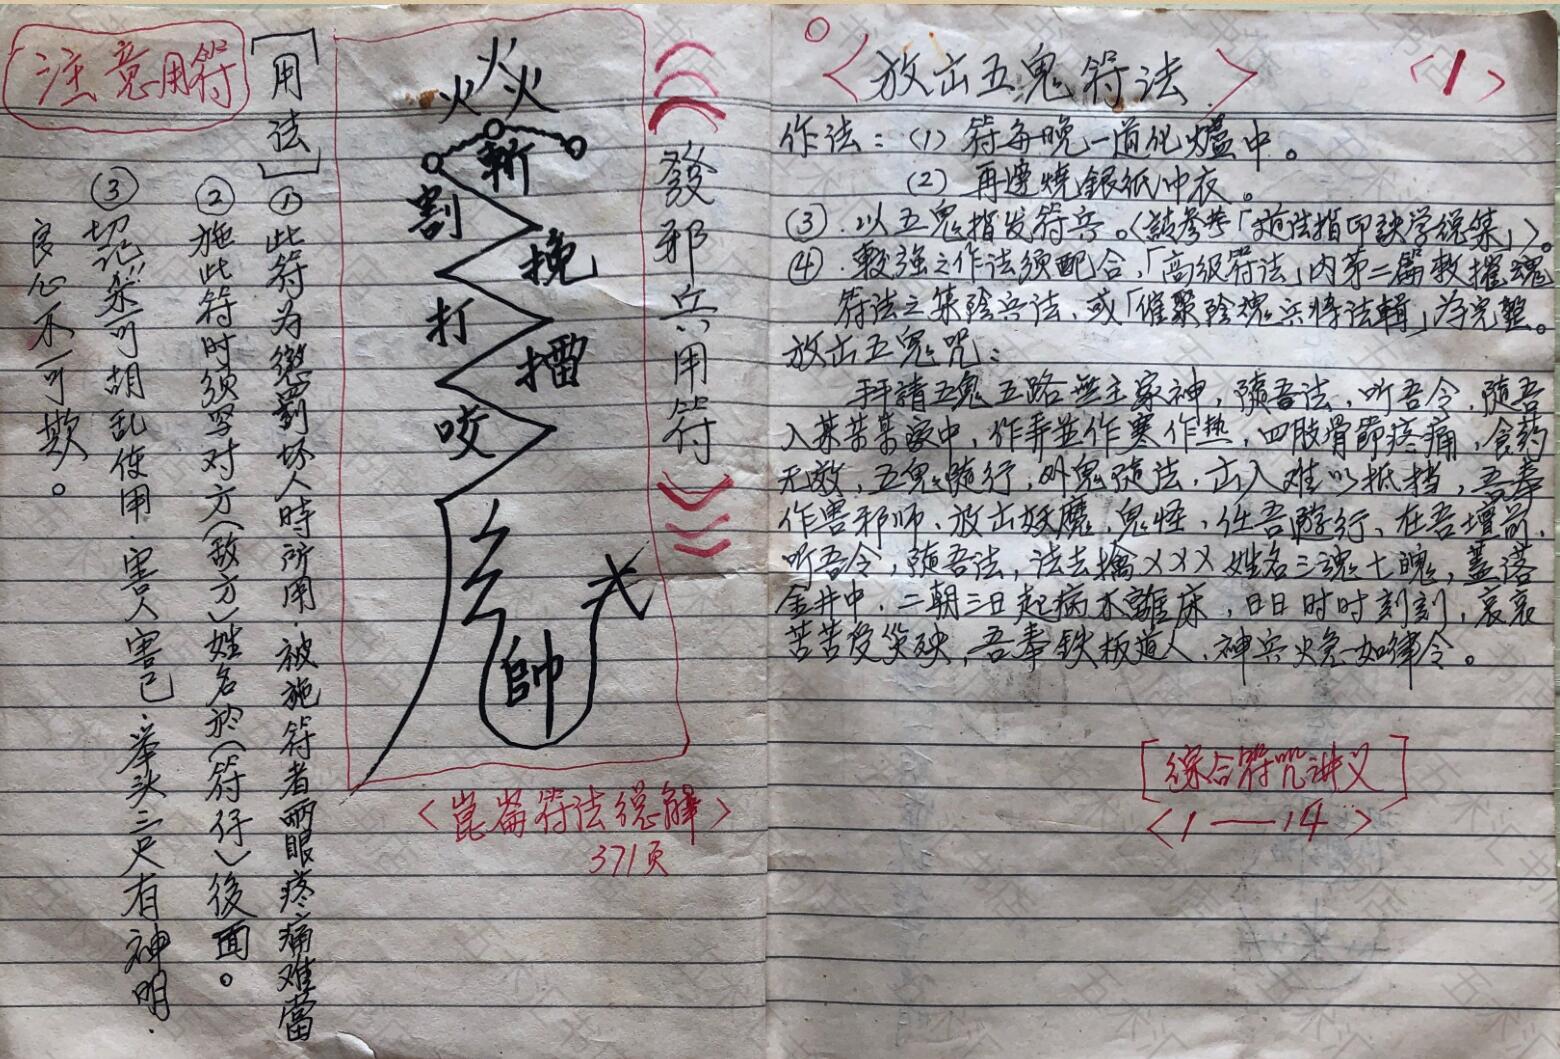 注意用符
「用法」①此符为懲罰坏人時所用.被施符者兩眼疼痛难當
②施此符时须写对方(敌方)姓名於(符仔)後面。
③切记!!不可胡乱使用.害人害己.举头三尺有神明.
良心不可欺。
火
火火
斬
割
挽
打
擂
咬
帥
發邪兵用符
<崑崙符法總解>
371页
<放出五鬼符法>
<1>
作法:(1)符每晚一道化爐中。
(2)再連燒銀紙冲衣。
(3).以五鬼指发符兵。<該参考「道法指印訣学總集」>。
(4).較强之作法须配合,「高级符法」内第二篇教摧魂
符法之集陰兵法,或「催聚陰魂兵将法輯」为完整。
放出五鬼咒:
拜請五鬼五路無主家神,隨吾法,听吾令,隨吾
入某某某家中,作弄並作寒作热,四肢骨節疼痛,食药
无效,五鬼隨行,外鬼随法,出入难以抵挡,吾奉
作害邪师,放出妖魔,鬼怪,任吾遊行,在吾壇前,
听吾令,隨吾法,法去擒XXX姓名三魂七魄,蓋落
金井中,二朝三日起病不離床,日日时时刻刻,哀哀
苦苦受災殃,吾奉铁板道人,神兵火急如律令。
[综合符咒讲义]
<1—14>